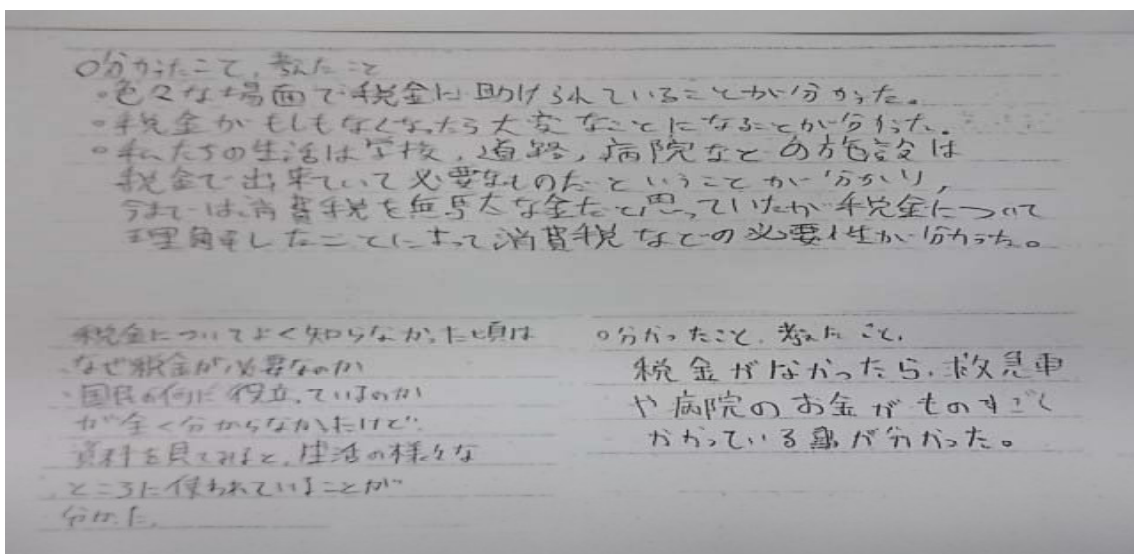 ○分かったこと、考えたこと
・色々な場面で税金に助けられていることが分かった。
・税金がもしもなくなったら大変なことになることが分かった。
・私たちの生活は学校、道路、病院などの施設は
税金で出来ていて必要なものだということが分かり、
今までは、消費税を無駄な金だと思っていたが税金について
理解したことによって消費税などの必要性が分かった。
税金についてよく知らなかった頃は
・なぜ税金が必要なのか
・国民の何に役立っているのか
が全く分からなかったけど
資料を見てみると、生活の様々な
ところに使われていることが
分かった。
○分かったこと、考えたこと、
税金がなかったら、救急車
や病院のお金がものすごく
かかっている事が分かった。